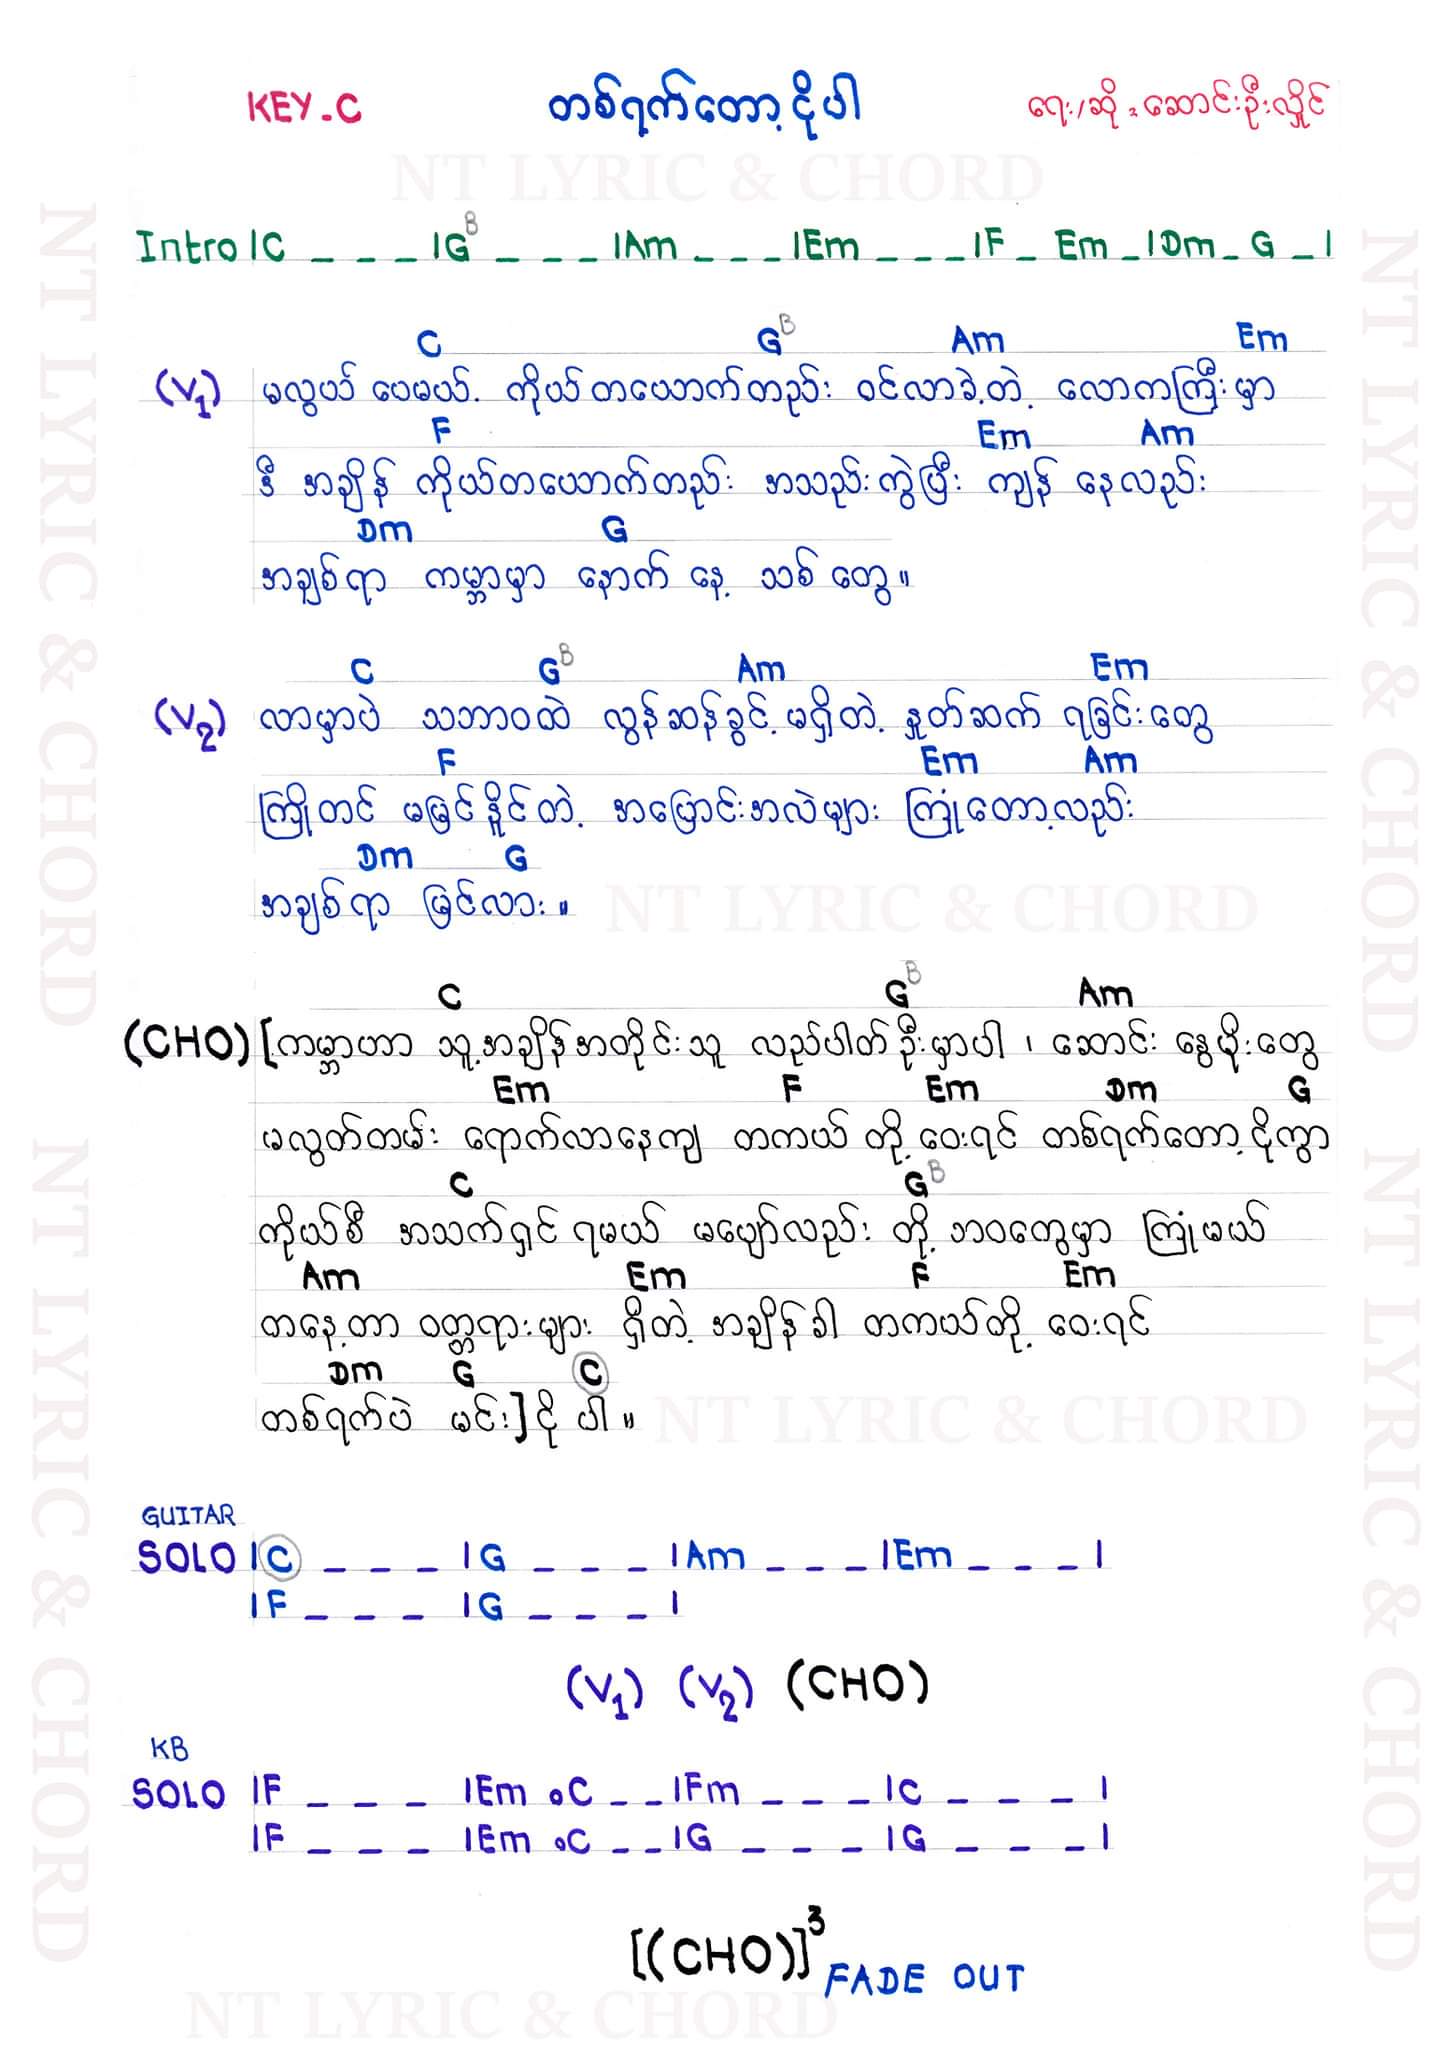 KEY-C တစ်ရက်တော့ငိုပါ ရေး/ဆို : ဆောင်းဦးလှိုင်
NT LYRIC & CHORD
Intro |C _ _ _ |G B _ _ _ |Am _ _ _ |Em _ _ _ |F _ Em _ |Dm _ G _ |
C G B Am Em
(V1) မလွယ်ပေမယ့် ကိုယ်တယောက်တည်း ဝင်လာခဲ့တဲ့ လောကကြီးမှာ
F Em Am
ဒီ အချိန် ကိုယ်တယောက်တည်း အသည်းကွဲပြီး ကျန် နေလည်း
Dm G
အချစ်ရာ ကမ္ဘာမှာ နောက် နေ့ သစ် တွေ။
C G B Am Em
(V2) လာမှာပဲ သဘာဝထဲ လွန်ဆန်ခွင့် မရှိတဲ့ နှုတ်ဆက် ရခြင်းတွေ
F Em Am
ကြိုတင် မမြင်နိူင်တဲ့ အပြောင်းအလဲများ ကြုံတော့လည်း
Dm G
အချစ်ရာ မြင်လား။
NT LYRIC & CHORD
C G B Am
(CHO) [ကမ္ဘာဟာ သူ့အချိန်အတိုင်းသူ လည်ပါတ်ဦးမှာပါ ၊ ဆောင်း နွေမိုးတွေ
Em F Em Dm G
မလွတ်တမ်း ရောက်လာနေကျ တကယ် တို့ ဝေးရင် တစ်ရက်တော့ ငိုကွာ
C G B
ကိုယ်စီ အသက်ရှင် ရမယ် မပျော်လည်း တို့ ဘဝတွေမှာ ကြုံမယ်
Am Em F Em
တနေ့တာ ဝတ္တရားများ ရှိတဲ့ အချိန်ခါ တကယ်တို့ ဝေးရင်
Dm G C
တစ်ရက်ပဲ မင်း] ငို ပါ။
NT LYRIC & CHORD
GUITAR
SOLO |C _ _ _ |G _ _ _ |Am _ _ _ |Em _ _ _ |
|F _ _ _ |G _ _ _ |
(V1) (V2) (CHO)
KB
SOLO |F _ _ _ |Em .C _ _ |Fm _ _ _ |C _ _ _ |
|F _ _ _ |Em .C _ _ |G _ _ _ |G _ _ _ |
[(CHO)]3 FADE OUT
NT LYRIC & CHORD
NT LYRIC & CHORD
NT LYRIC & CHORD
NT LYRIC & CHORD
NT LYRIC & CHORD